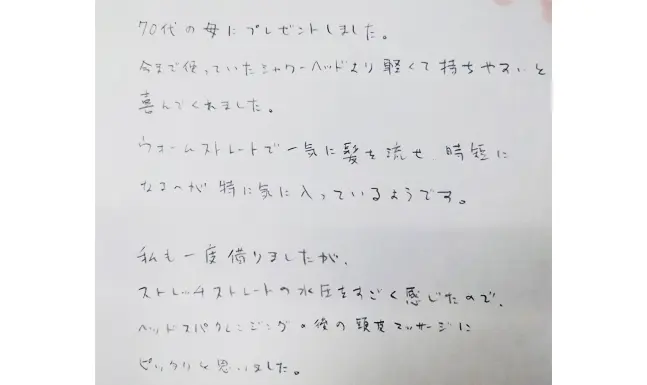 70代の母にプレゼントしました。
今まで使っていたシャワーヘッドより軽くて持ちやすいと
喜んでくれました。
ウォームストレートで一気に髪を流せ、時短に
なるのが特に気に入っているようです。
私も一度借りましたが、
ストレッチストレートの水圧をすごく感じたので、
ヘッドスパクレンジングの後の頭皮マッサージに
ピッタリと思いました。